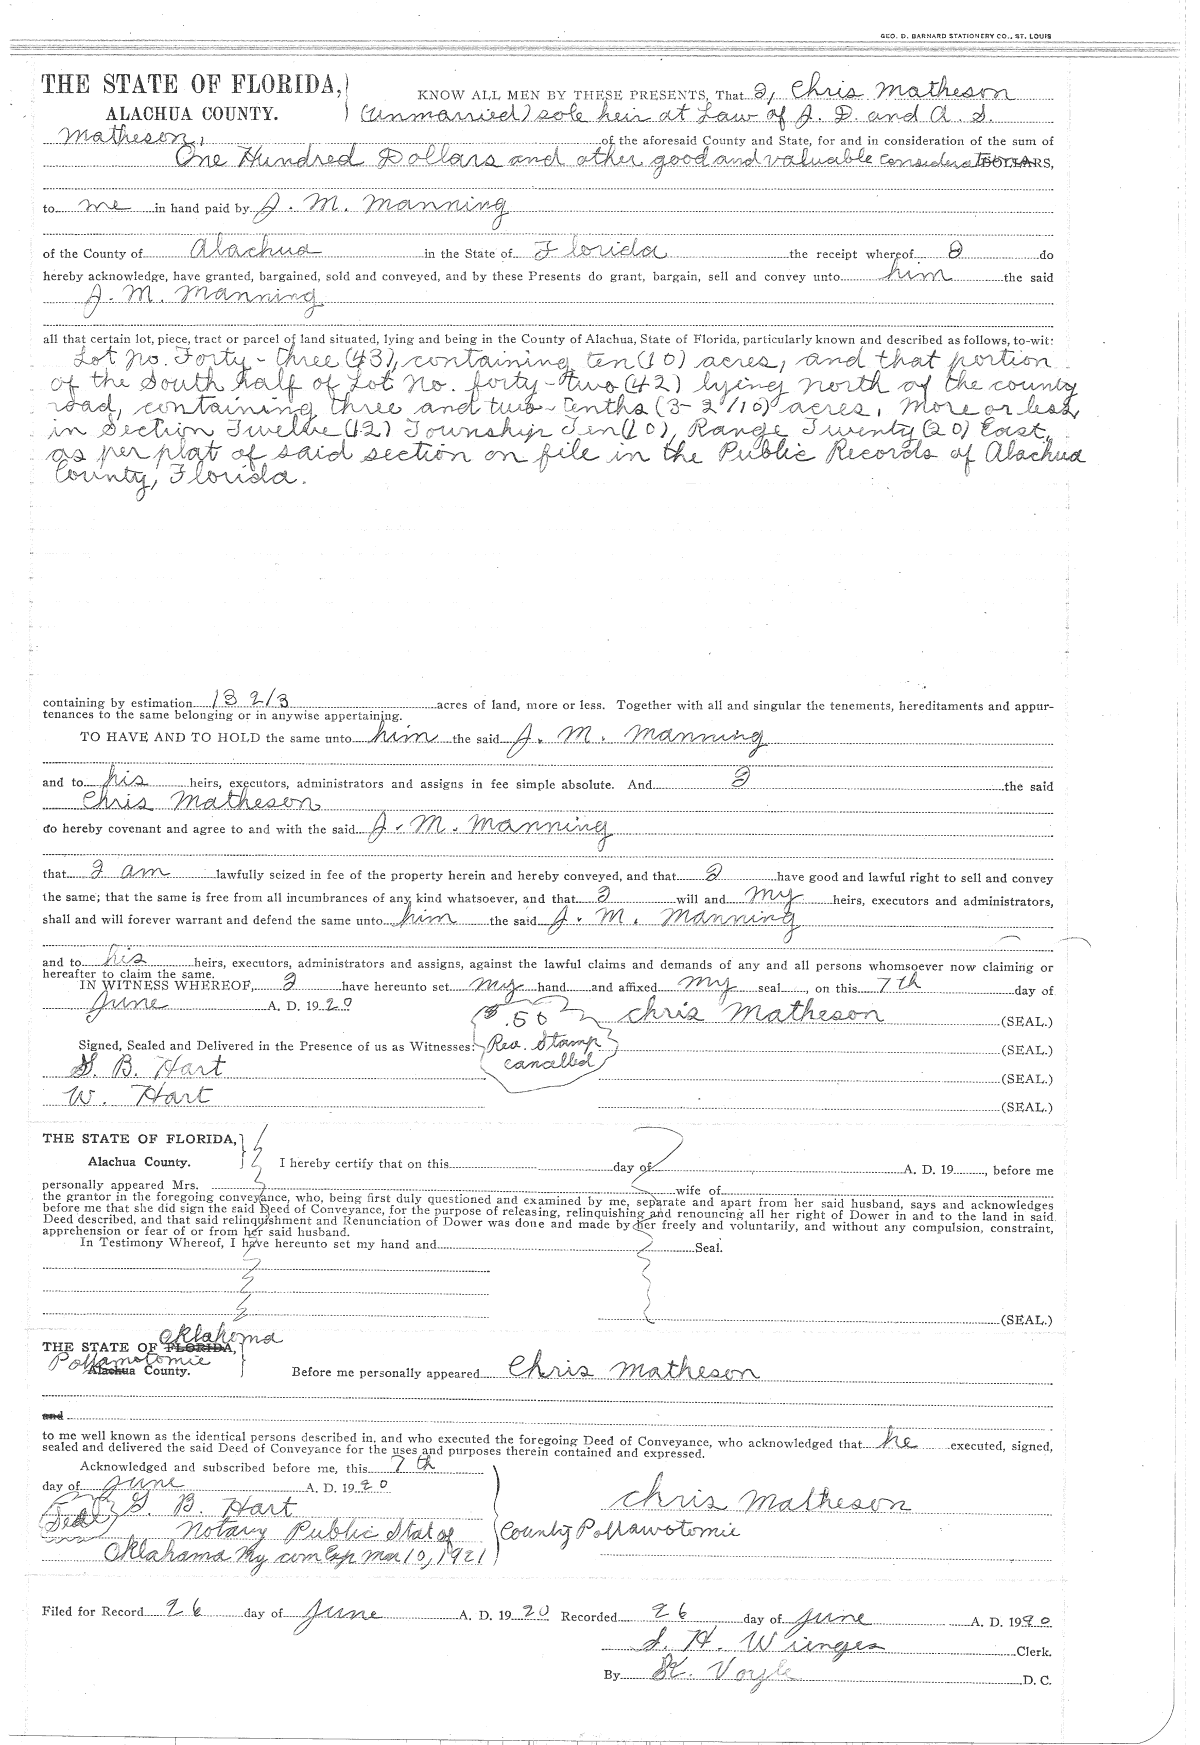 GEO. D. BARNARD STATIONERY CO., ST. LOUIS
THE STATE OF FLORIDA,
ALACHUA COUNTY.
KNOW ALL MEN BY THESE PRESENTS, That I, Chris Matheson
(unmarried) sole heir at Law of J. D. and A. S.
Matheson, of the aforesaid County and State, for and in consideration of the sum of
One Hundred Dollars and other good and valuable DOLLARS,
to me in hand paid by J. M. Manning
of the County of Alachua in the State of Florida the receipt whereof I do
hereby acknowledge, have granted, bargained, sold and conveyed, and by these Presents do grant, bargain, sell and convey unto him the said
J. M. Manning
all that certain lot, piece, tract or parcel of land situated, lying and being in the County of Alachua, State of Florida, particularly known and described as follows, to-wit:
Lot no. Forty-three (43), containing ten (10) acres, and that portion
of the South half of Lot No. forty-two (42) lying north of the county
road, containing three and two-tenths (3-2/10) acres, more or less,
in Section Twelve (12) Township Ten (10), Range Twenty (20) East,
as per plat of said section on file in the Public Records of Alachua
County, Florida.
containing by estimation 13 2/3 acres of land, more or less. Together with all and singular the tenements, hereditaments and appur-
tenances to the same belonging or in anywise appertaining.
TO HAVE AND TO HOLD the same unto him the said J. M. Manning
and to his heirs, executors, administrators and assigns in fee simple absolute. And I the said
Chris Matheson
do hereby covenant and agree to and with the said J. M. Manning
that I am lawfully seized in fee of the property herein and hereby conveyed, and that I have good and lawful right to sell and convey
the same; that the same is free from all incumbrances of any kind whatsoever, and that I will and my heirs, executors and administrators,
shall and will forever warrant and defend the same unto him the said J. M. Manning
and to his heirs, executors, administrators and assigns, against the lawful claims and demands of any and all persons whomsoever now claiming or
hereafter to claim the same.
IN WITNESS WHEREOF, I have hereunto set my hand and affixed my seal, on this 7th day of
June A. D. 1920
$.50 Chris Matheson (SEAL.)
Signed, Sealed and Delivered in the Presence of us as Witnesses: Rev. Stamp (SEAL.)
cancelled
B. Hart (SEAL.)
W. Hart (SEAL.)
THE STATE OF FLORIDA,
Alachua County. I hereby certify that on this day of A. D. 19 , before me
personally appeared Mrs. wife of
the grantor in the foregoing conveyance, who, being first duly questioned and examined by me, separate and apart from her said husband, says and acknowledges
before me that she did sign the said Deed of Conveyance, for the purpose of releasing, relinquishing and renouncing all her right of Dower in and to the land in said
Deed described, and that said relinquishment and Renunciation of Dower was done and made by her freely and voluntarily, and without any compulsion, constraint,
apprehension or fear of or from her said husband.
In Testimony Whereof, I have hereunto set my hand and Seal.
(SEAL.)
Oklahoma
THE STATE OF FLORIDA,
Alachua County. Before me personally appeared Chris Matheson
and
to me well known as the identical persons described in, and who executed the foregoing Deed of Conveyance, who acknowledged that he executed, signed,
sealed and delivered the said Deed of Conveyance for the uses and purposes therein contained and expressed.
Acknowledged and subscribed before me, this 7th
day of June A. D. 1920
Seal B. Hart Chris Matheson
Notary Public Stat of County Pottawotomie
Oklahoma My com Exp Mar 10, 1921
Filed for Record 26 day of June A. D. 1920 Recorded 26 day of June A. D. 1920
S. H. Wienges Clerk.
By D. C.